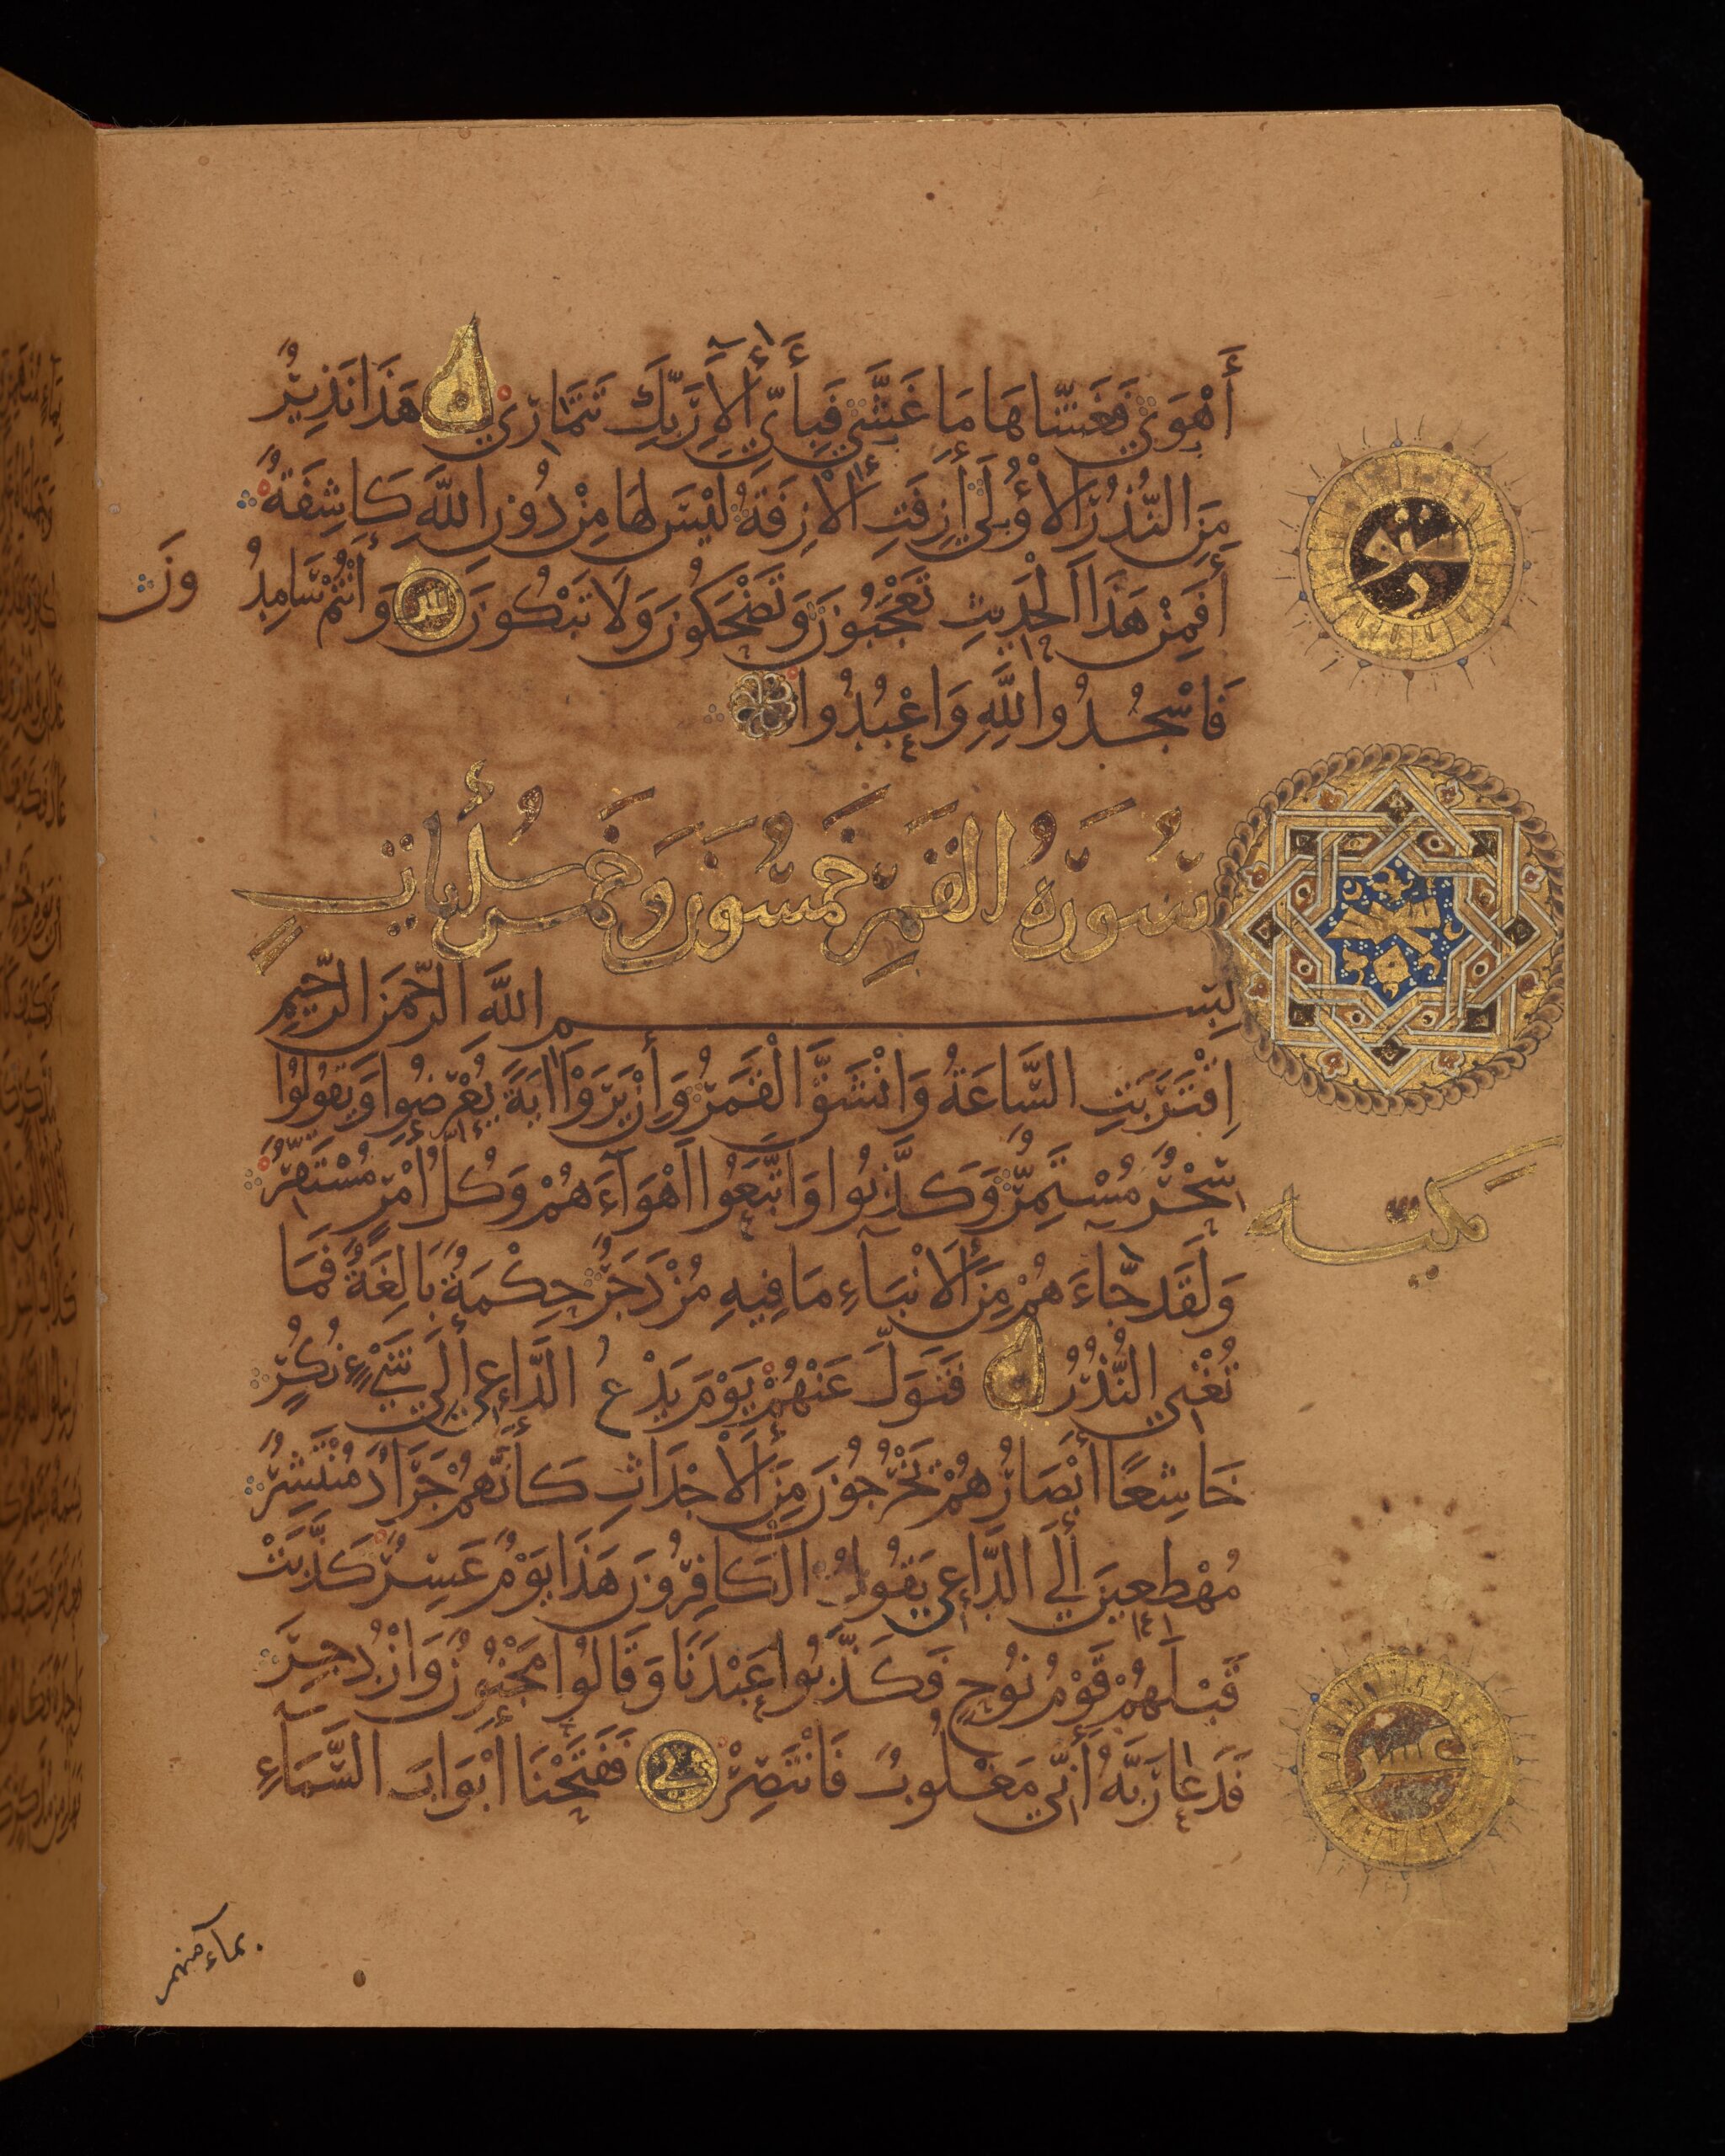 أَهْوَى فَغَشَّاهَا مَا غَشَّى فَبِأَيِّ آلَاءِ رَبِّكَ تَتَمَارَى هَذَا نَذِيرٌ
مِنَ النُّذُرِ الْأُولَى أَزِفَتِ الْآزِفَةُ لَيْسَ لَهَا مِنْ دُونِ اللَّهِ كَاشِفَةٌ
أَفَمِنْ هَذَا الْحَدِيثِ تَعْجَبُونَ وَتَضْحَكُونَ وَلَا تَبْكُونَ وَأَنْتُمْ سَامِدُ
ونَ
فَاسْجُدُوا لِلَّهِ وَاعْبُدُوا
سُورَةُ الْقَمَرِ خَمْسُونَ وَخَمْسُ أَيَاتٍ
مكية
بِسْمِ اللَّهِ الرَّحْمَنِ الرَّحِيمِ
اِقْتَرَبَتِ السَّاعَةُ وَانْشَقَّ الْقَمَرُ وَأِنْ يَرَوْا اٰيَةً يُعْرِضُوا وَيَقُولُوا
سِحْرٌ مُسْتَمِرٌّ وَكَذَّبُوا وَاتَّبَعُوا أَهْوَآءَهُمْ وَكُلُّ أَمْرٍ مُسْتَقِرٌّ
وَلَقَدْ جَّاءَهُمْ مِنَ الْأَنْبَآءِ مَا فِيهِ مُزْدَجَرٌ حِكْمَةٌ بَالِغَةٌ فَمَا
تُغْنِي النُّذُرُ فَتَوَلَّ عَنْهُمْ يَوْمَ يَدْعُ الدَّاعِي إِلَى شَيْءٍ نُكُرٍ
خَاشِعًا أَبْصَارُهُمْ يَخْرُجُونَ مِنَ الْأَجْدَاثِ كَأَنَّهُمْ جَرَادٌ مُنْتَشِرٌ
مُهْطِعِينَ إِلَى الدَّاعِي يَقُولُ الْكَافِرُونَ هَذَا يَوْمٌ عَسِرٌ كَذَّبَتْ
قَبْلَهُمْ قَوْمُ نُوحٍ فَكَذَّبُوا عَبْدَنَا وَقَالُوا مَجْنُونٌ وَازْدُجِرَ
فَدَعَا رَبَّهُ أَنِّي مَغْلُوبٌ فَانْتَصِرْ فَفَتَحْنَا أَبْوَابَ السَّمَآءِ
عشر
بماء منهمر